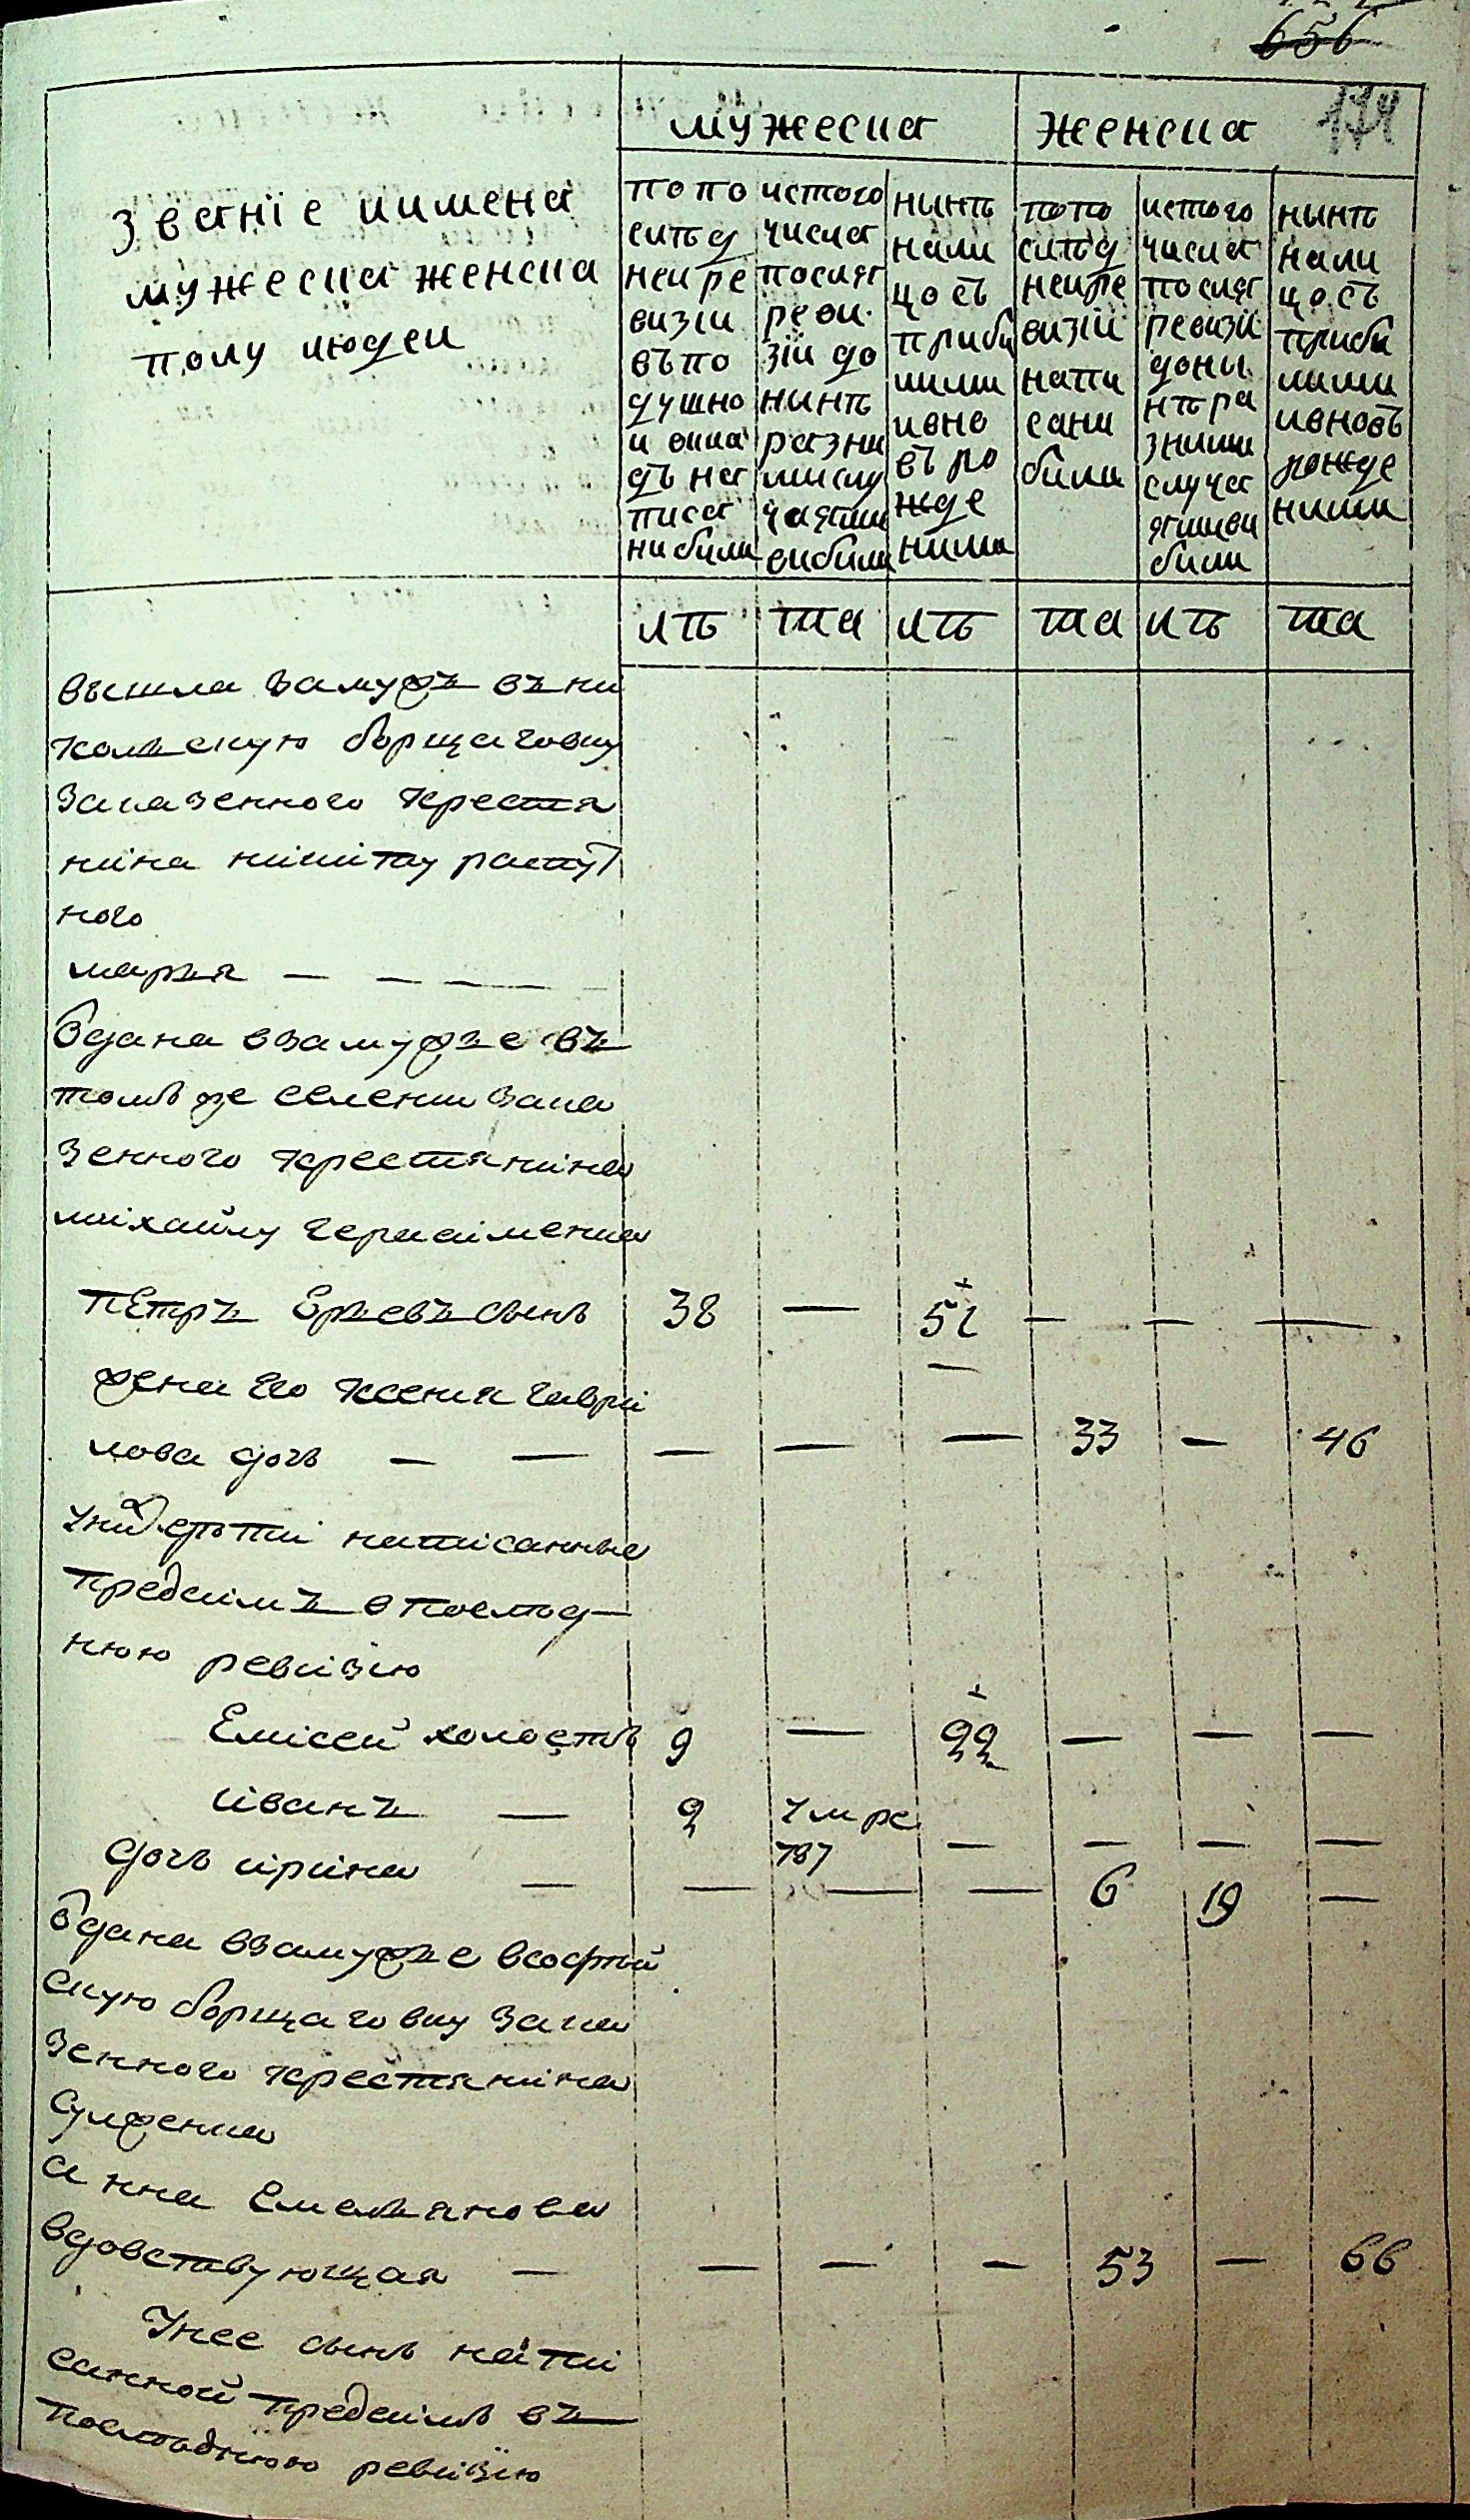 656
174
мужеска женска
званіе иимена
мужеска женска
полу людеи
попо
слѣд
неире
визіи
въпо
душно
и окла
дѣ на
писа
ни были
истого
числа
послѧ
реви
зіи до
нынѣ
разни
мислу
чаями
вибили
нынѣ
нали
цо съ
прибы
лими
ивно
въ ро
жде
ними
попо
слѣд
неире
визіи
напи
сани
били
истого
числа
послѧ
ревизіи
доны
нѣ ра
зними
случа
ѧмиви
били
нынѣ
нали
цо съ
прибы
лими
ивновъ
рожде
ними
лѣ та лѣ та лѣ та
вышла замужъ въ ни
кольскую борщаговку
заказенного крестя
нина никиту распут
ного
марья — — — —
ѿдана взамужье въ
томъ же селении зака
зенного крестянина
михайлу герасименка
петръ Юрьевъ сынъ 38 — 51 — — —
жена его ксения гаври
лова дочь — — — — — 33 — 46
унихъ дѣти написанные
предсимъ в послѣд
нюю ревизию
Елисей холостъ 9 — 22 — — —
иванъ — 2 умре
787 — — — —
дочь ирина — — — — 6 19 —
ѿдана взамужье всофѣй
скую борщаговку зака
зенного крестянина
Сулженка
анна Емельянова
вдовствующая — — — — 53 — 66
Унее сынъ напи
санной предсимъ въ
послѣднюю ревизїю